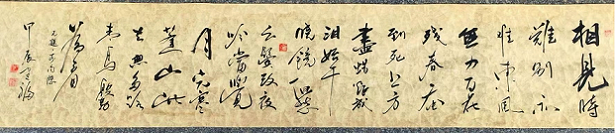 相見時
難別亦
難東風
無力百花
殘春蚕
到死丝方
盡蜡炬成
泪始干
曉鏡但愁
云鬓改夜
吟應覺
月光寒
蓬山此
去無多路
青鳥殷勤
看
甲辰